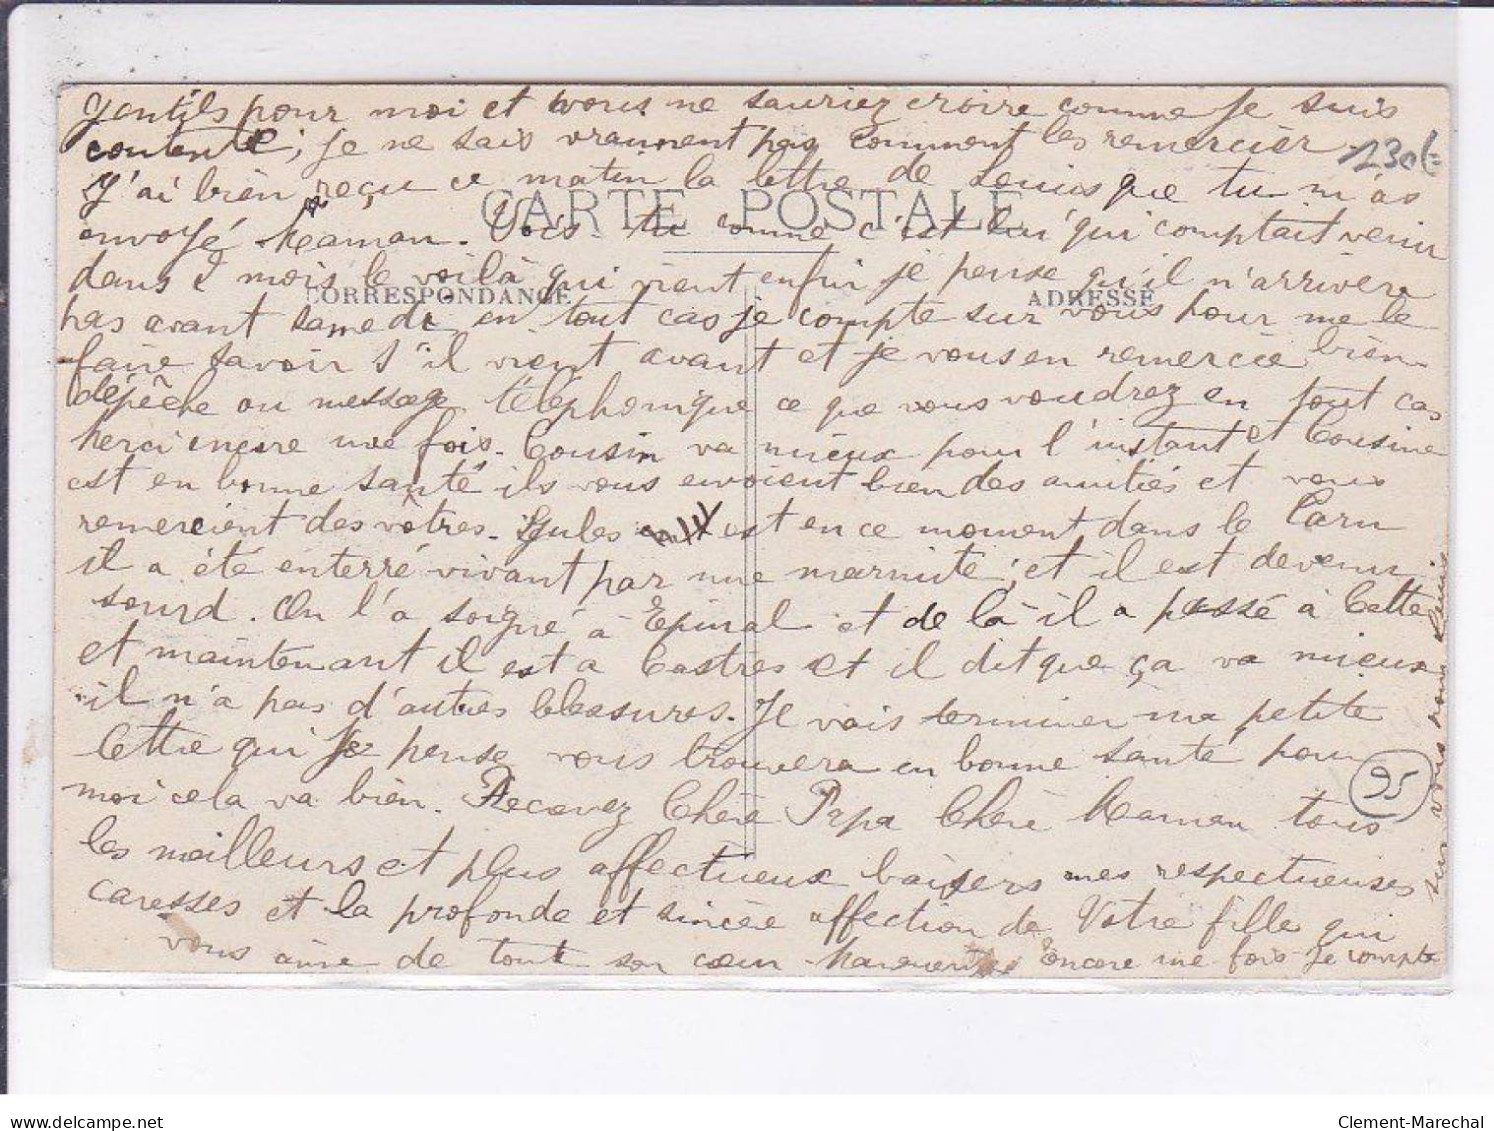 gentils pour moi et vous ne sauriez croire comme je suis
contente, je ne sais vraiment pas comment les remercier.
130f
J'ai bien reçu ce matin la lettre de Louis que tu m'as
CARTE POSTALE
envoyé Maman. Vois-tu comme c'est lui qui comptait venir
dans 2 mois le voilà qui vient enfin je pense qu'il n'arrivera
CORRESPONDANCE
ADRESSE
pas avant samedi en tout cas je compte sur vous pour me le
faire savoir s'il vient avant et je vous en remercie bien
dépêche ou message téléphonique ce que vous voudrez en tout cas
merci encore une fois. Cousin va mieux pour l'instant et Cousine
est en bonne santé ils vous envoient bien des amitiés et vous
remercient des vôtres. Jules est en ce moment dans le Tarn
il a été enterré vivant par une marmite, et il est devenu
sourd. On l'a soigné à Epinal et de là il a passé à Cette
et maintenant il est a Castres et il dit que ça va mieux
il n'a pas d'autres blessures. Je vais terminer ma petite
lettre qui je pense vous trouvera en bonne santé pour
moi cela va bien. Recevez Chère Papa Chère Maman tous
95
les meilleurs et plus affectueux baisers mes respectueuses
caresses et la profonde et sincère affection de Votre fille qui
vous aime de tout son cœur Marguerite Encore une fois je compte
sur vous pour Louis
Clement-Marechal
www.delcampe.net